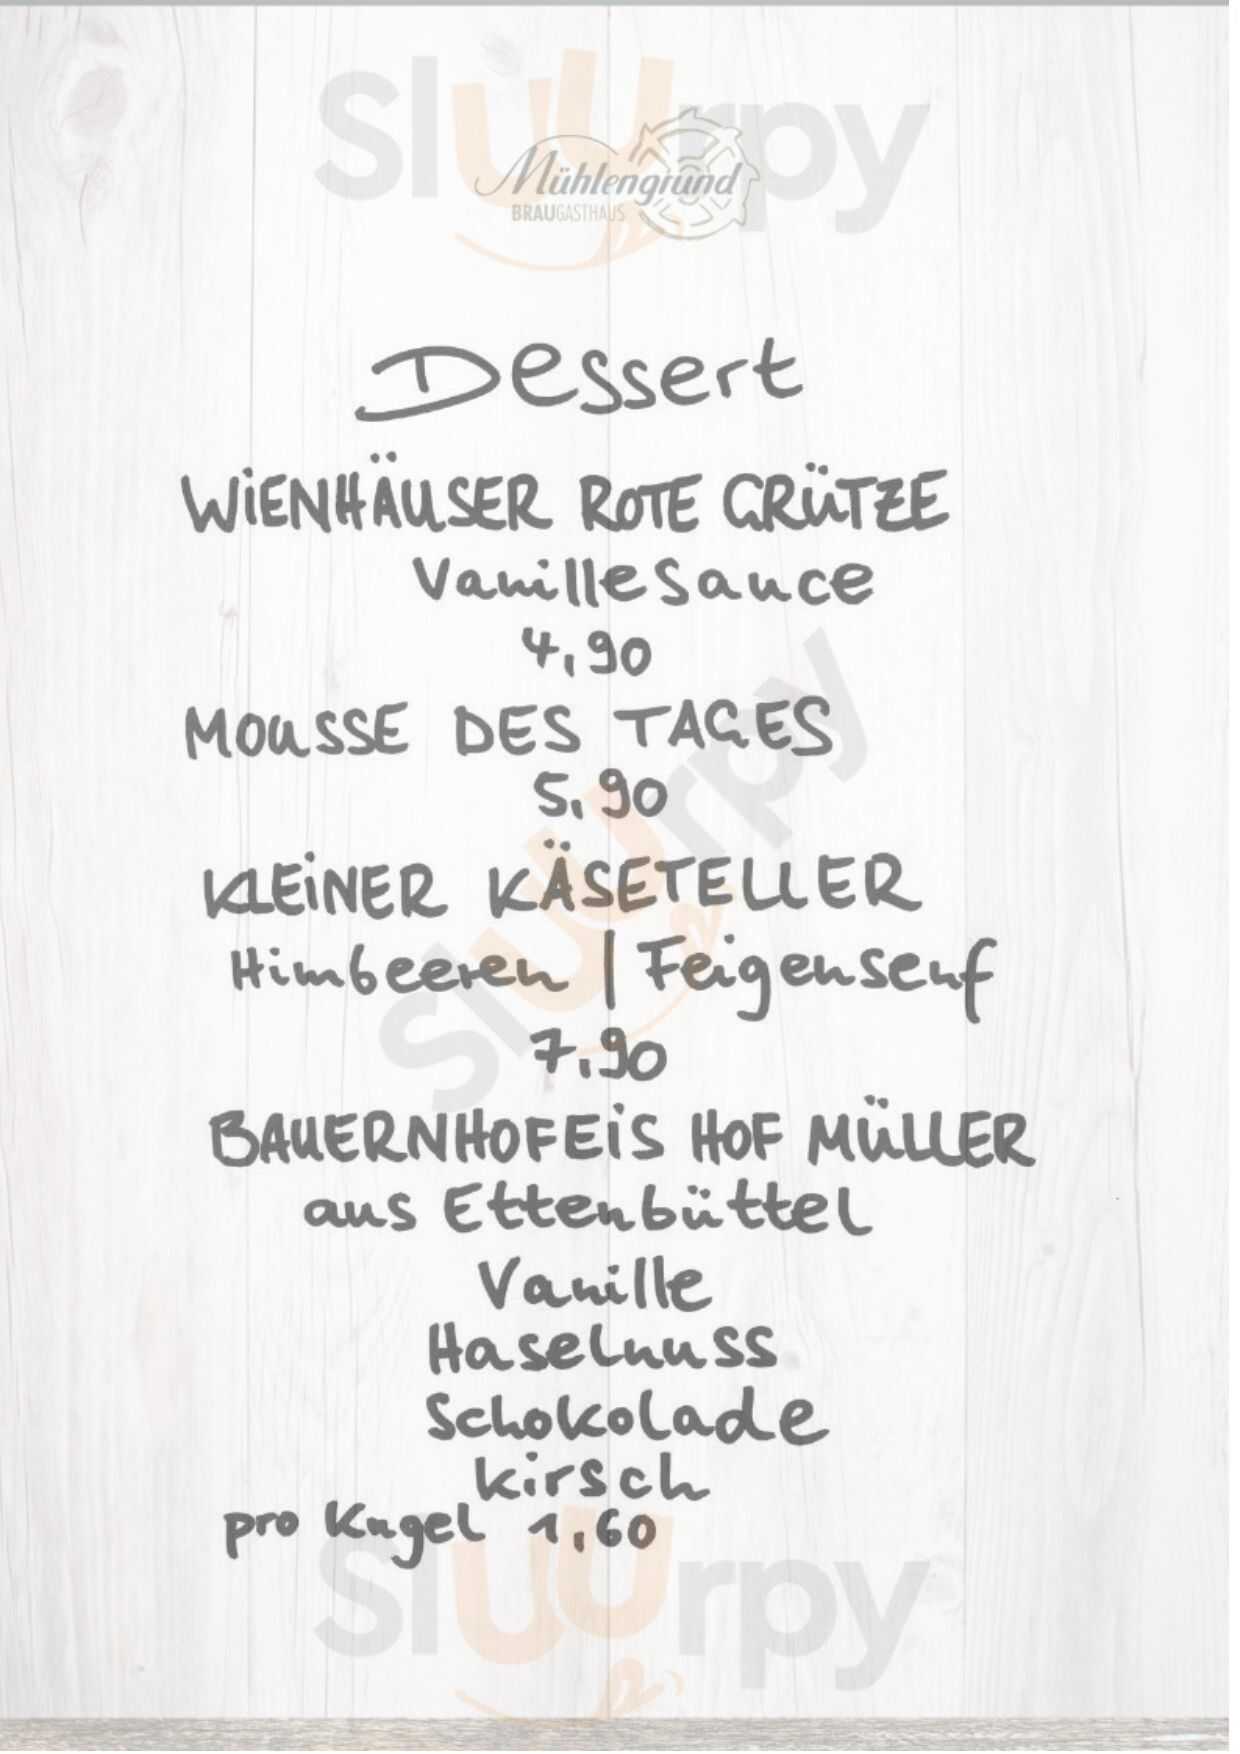 Sluurpy
Mühlengrund
BRAUGASTHAUS
Dessert
WiENHÄUSER ROTE GRÜTZE
Vanillesauce
4,90
MOUSSE DES TAGES
5,90
Sluurpy
KLEiNER KÄSETELLER
Himbeeren | Feigensenf
7,90
BAUERNHOFEiS HOF MÜLLER
aus Ettenbüttel
Vanille
Haselnuss
Schokolade
Kirsch
pro Kugel 1,60
Sluurpy